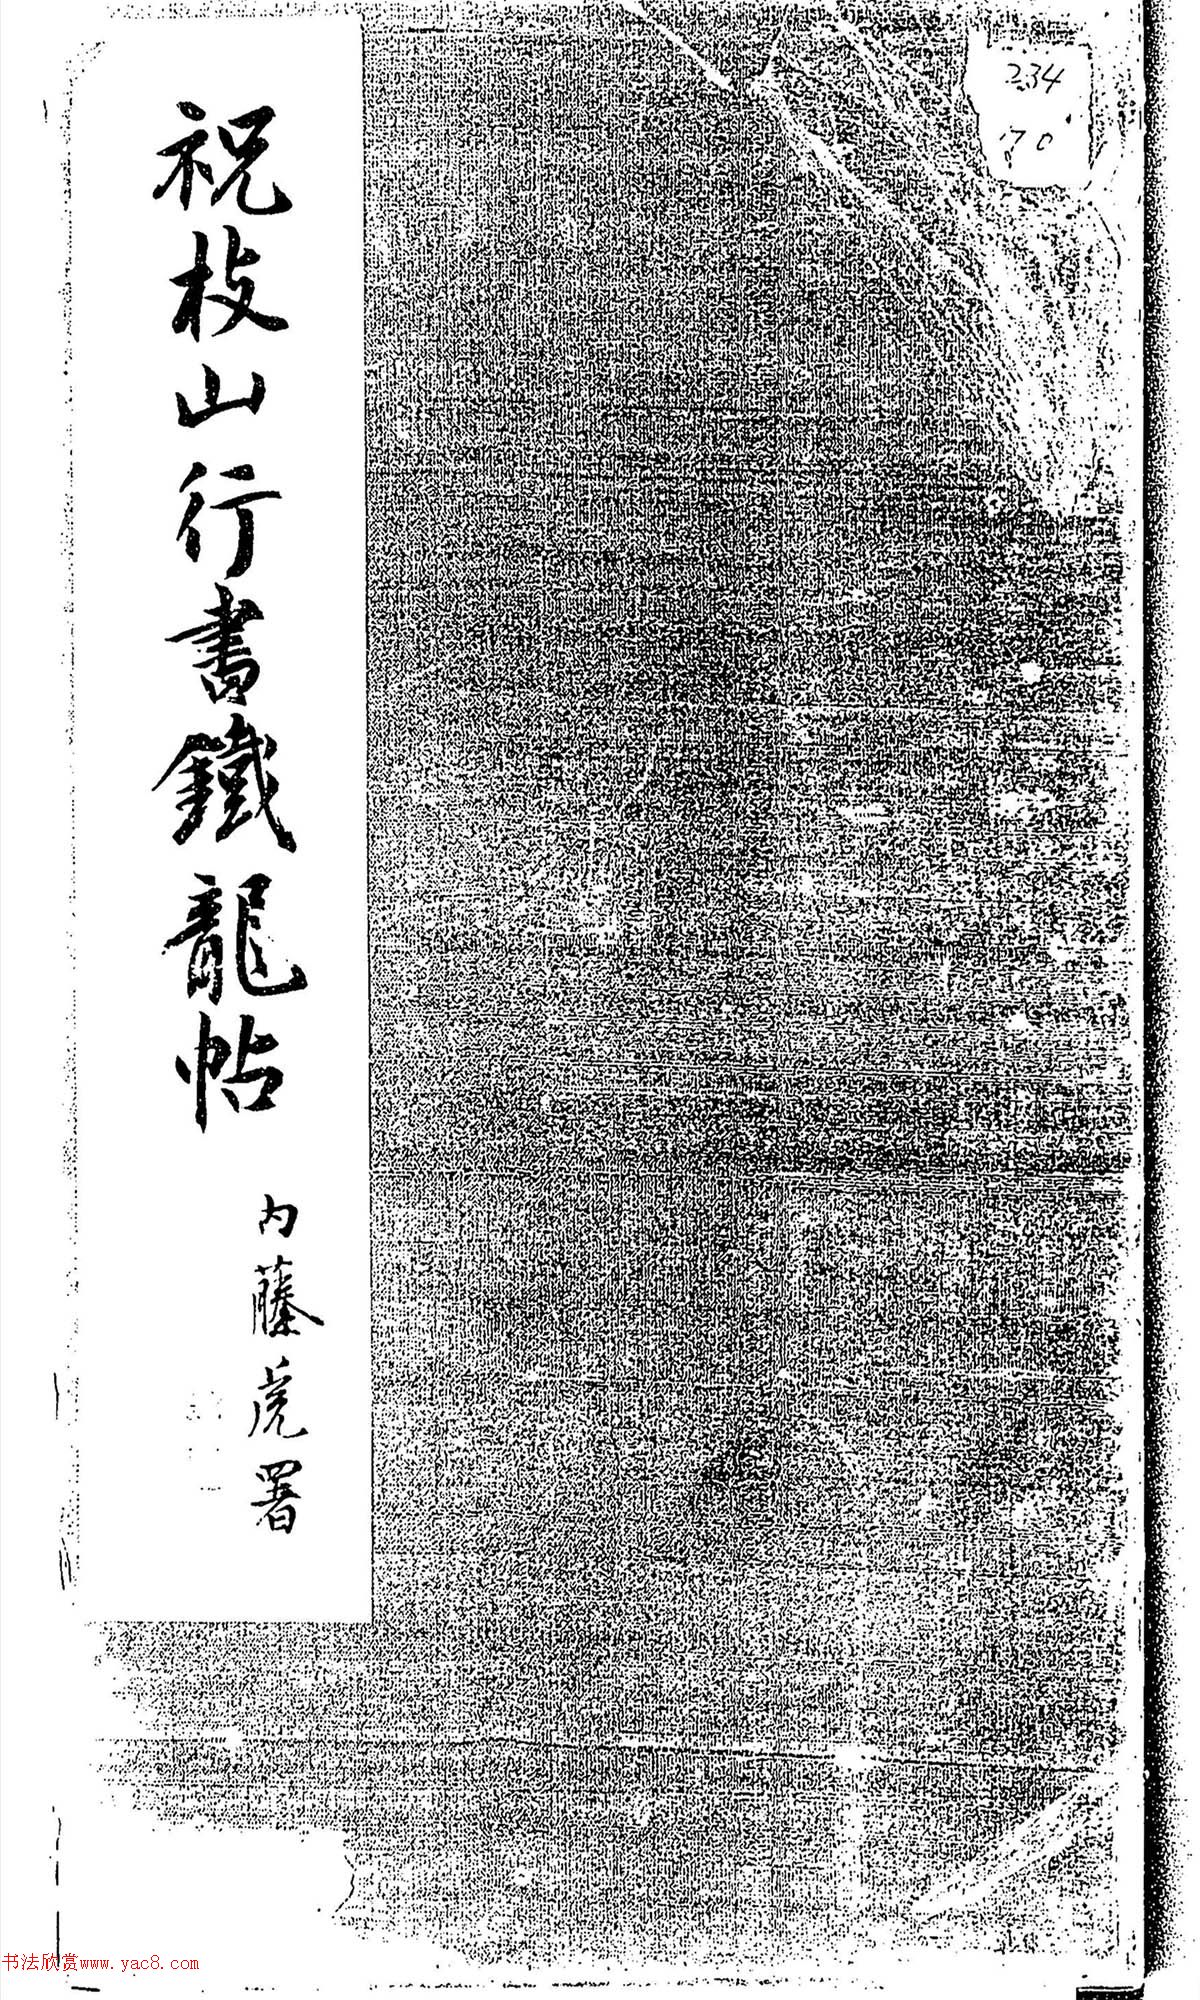 234
70
祝枝山行書鐵龍帖
内藤虎署
书法欣赏www.yac8.com